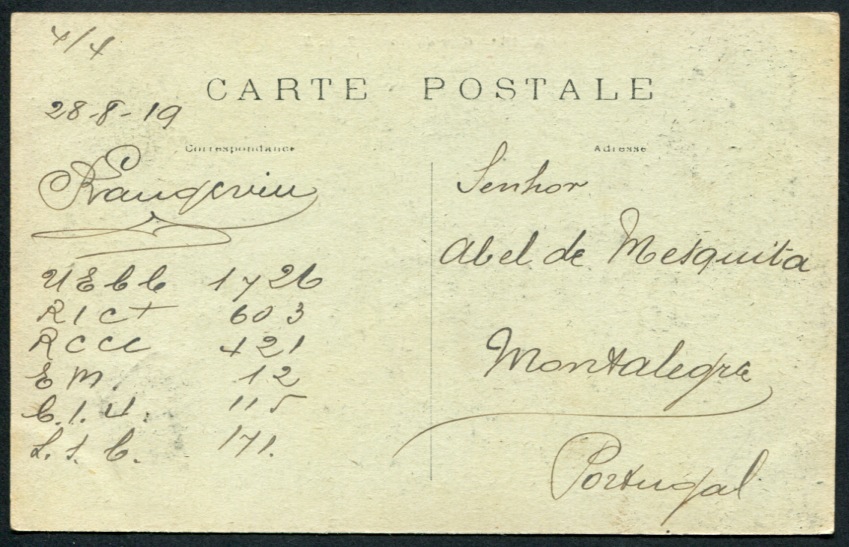 4/4
CARTE POSTALE
28-8-19
Correspondance
Adresse
Senhor
Abel de Mesquita
Montalegre
Portugal
1726
R I C + 603
R C C C 421
E M. 12
C. I. U. 115
L. S. C. 171.